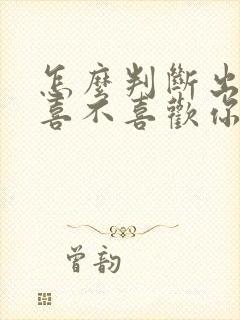 怎麼判斷出
喜不喜歡你
曾韵